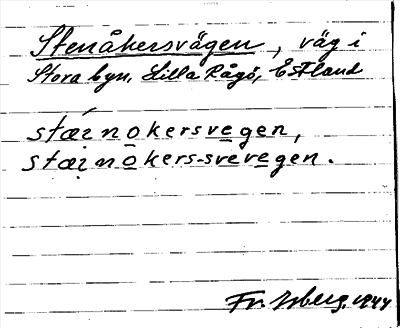 Stenåkersvägen, väg i
Stora byn, Lilla Rågö, Estland
stæi̯nokersvegen,
stæi̯nokers-svevegen.
Fr. Isberg, 1944